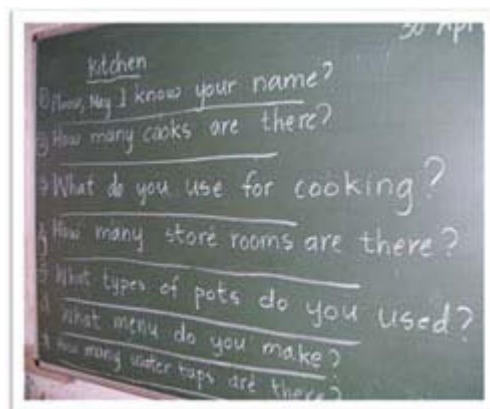 30 Apr
Kitchen
① Please, May I know your name?
② How many cooks are there?
3 What do you use for cooking?
4 How many store rooms are there?
5 What types of pots do you used?
What menu do you make?
How many water taps are there?